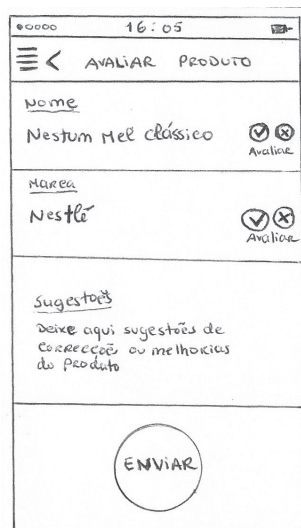 16:05
AVALIAR PRODUTO
Nome
Nestum Mel clássico
Avaliar
Marca
Nestlé
Avaliar
Sugestões
Deixe aqui sugestões de
correcçoẽ ou melhorias
do Produto
ENVIAR